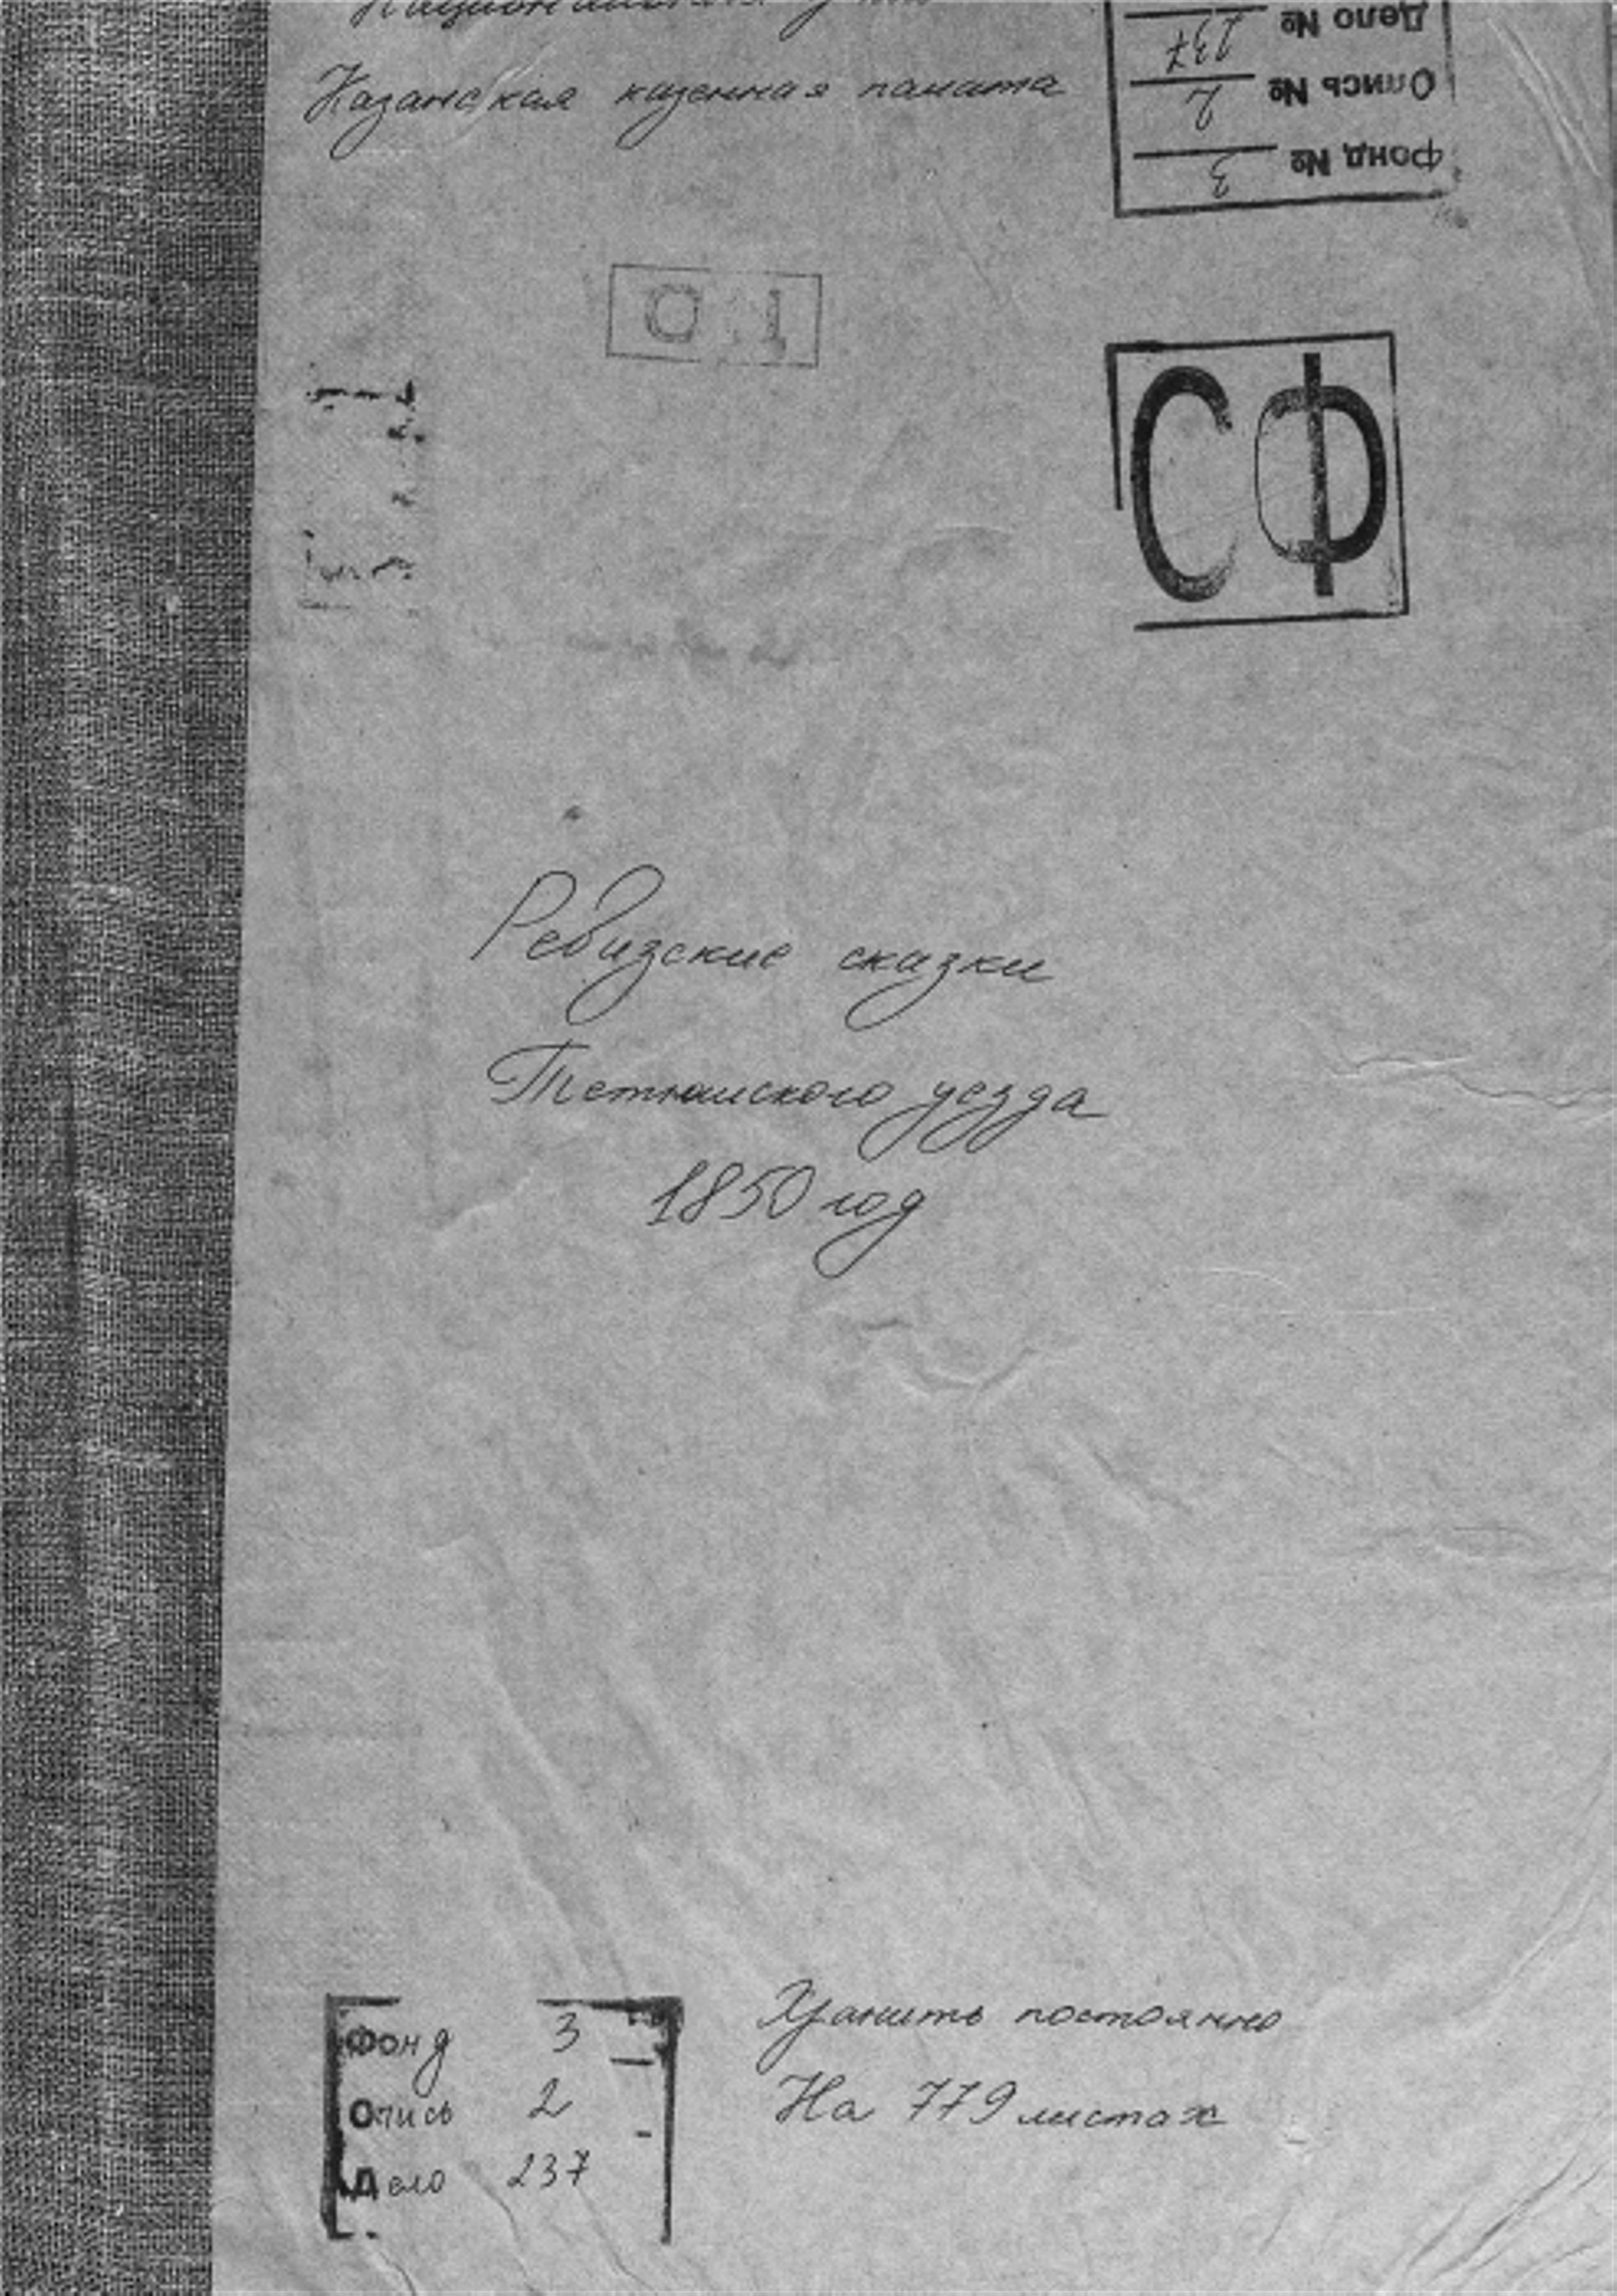 Казанская казенная палата
Дело № 237
Опись № 2
Фонд № 3
СФ
Ревизские сказки
Тетюшского уезда
1850 год
Фонд 3
Опись 2
Дело 237
Хранить постоянно
На 779 листах